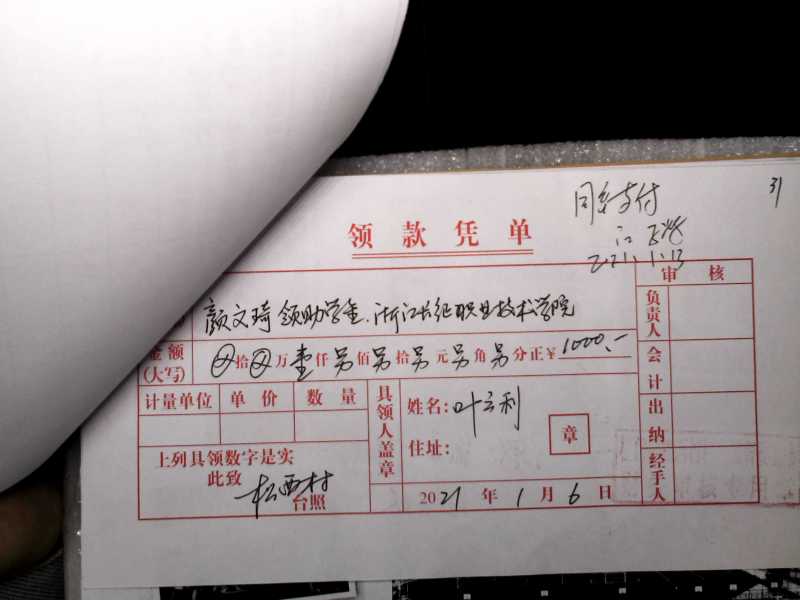 31
同意支付
江
2021.1.13
领款凭单
审核
颜文琦领助学金.浙江长征职业技术学院
负责人
金额(大写) 拾 万壹仟另佰另拾另元另角另分正¥1000.-
会计
计量单位 单价 数量
具领人盖章
姓名:叶立利
住址:
章
出纳
上列具领数字是实
此致
松西村
台照
2021年1月6日
经手人